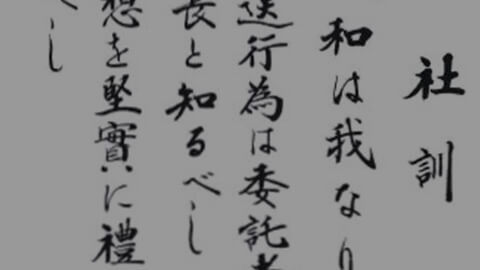 社訓
和は我なり
送行為は委託者
長と知るべし
想を堅實に禮
べし